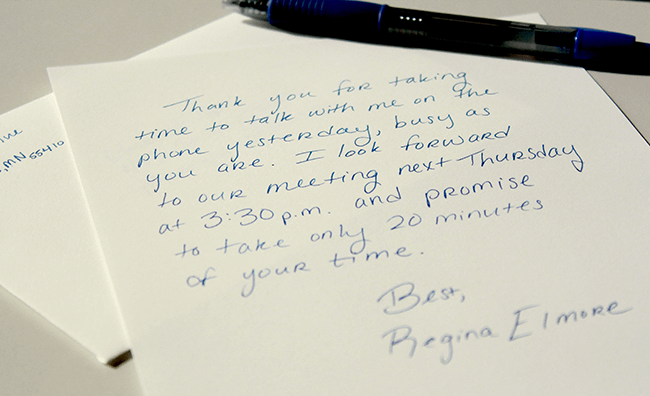 Thank you for taking
time to talk with me on the
phone yesterday, busy as
you are. I look forward
to our meeting next Thursday
at 3:30 p.m. and promise
to take only 20 minutes
of your time.
Best,
Regina Elmore
MN 55410